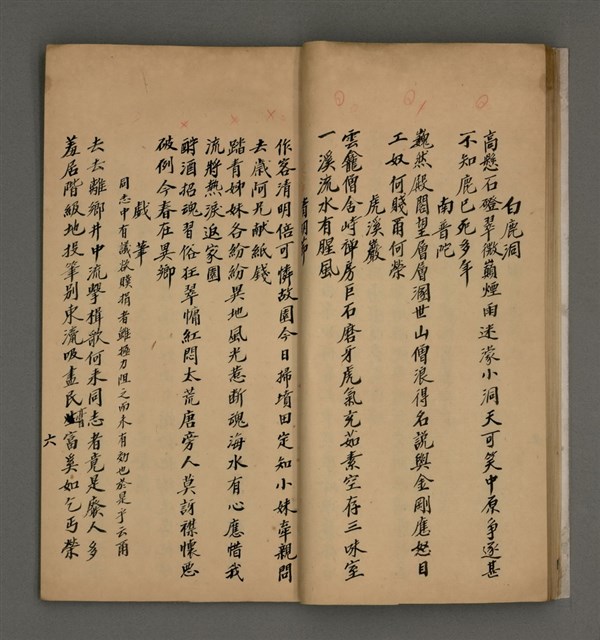 白鹿洞
高懸石磴翠微巔煙雨迷濛小洞天可笑中原爭逐甚
不知鹿已死多年
南普陀
巍然殿閣望層層溷世山僧浪得名說與金剛應怒目
工奴何賤爾何榮
虎溪巖
雲龕僧舍峙禪房巨石磨牙虎氣充茹素空存三昧室
一溪流水有腥風
清明節
作客清明倍可憐故園今日掃墳田定知小妹牽親問
去歲阿兄献紙錢
踏青姊妹各紛紛異地風光惹斷魂海水有心應惜我
流將熱淚返家園
酹酒招魂習俗狂翠幗紅閨太荒唐旁人莫訝襟懷惡
破例今春在異鄉
戲筆
同志中有議欲賤捐者雖極力阻之而未有効也於是乎云爾
去去離鄉井中流擊楫歌何来同志者竟是廢人多
羞居階級地投筆別東瀛吸盡民膏富奚如乞丐榮
六